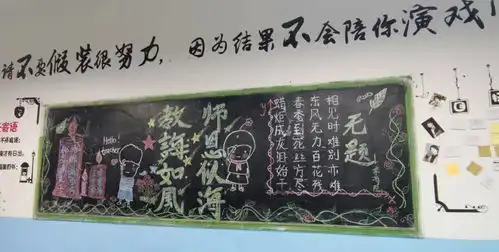 请不要假装很努力，因为结果不会陪你演戏！
寄语
Hello!
teacher
师恩似海
教誨如風
无题
李商隐
相见时难别亦难
东风无力百花残
春蚕到死丝方尽
蜡炬成灰泪始干